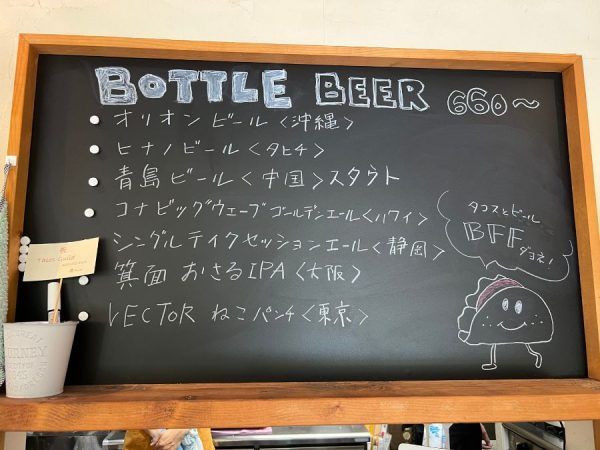 BOTTLE BEER 660～
オリオンビール〈沖縄〉
ヒナノビール〈タヒチ〉
青島ビール〈中国〉スタウト
コナビッグウェーブゴールデンエール〈ハワイ〉
シングルテイクセッションエール〈静岡〉
箕面 おさるIPA〈大阪〉
VECTOR ねこパンチ〈東京〉
タコスとビール
BFF
ダヨネ!
祝